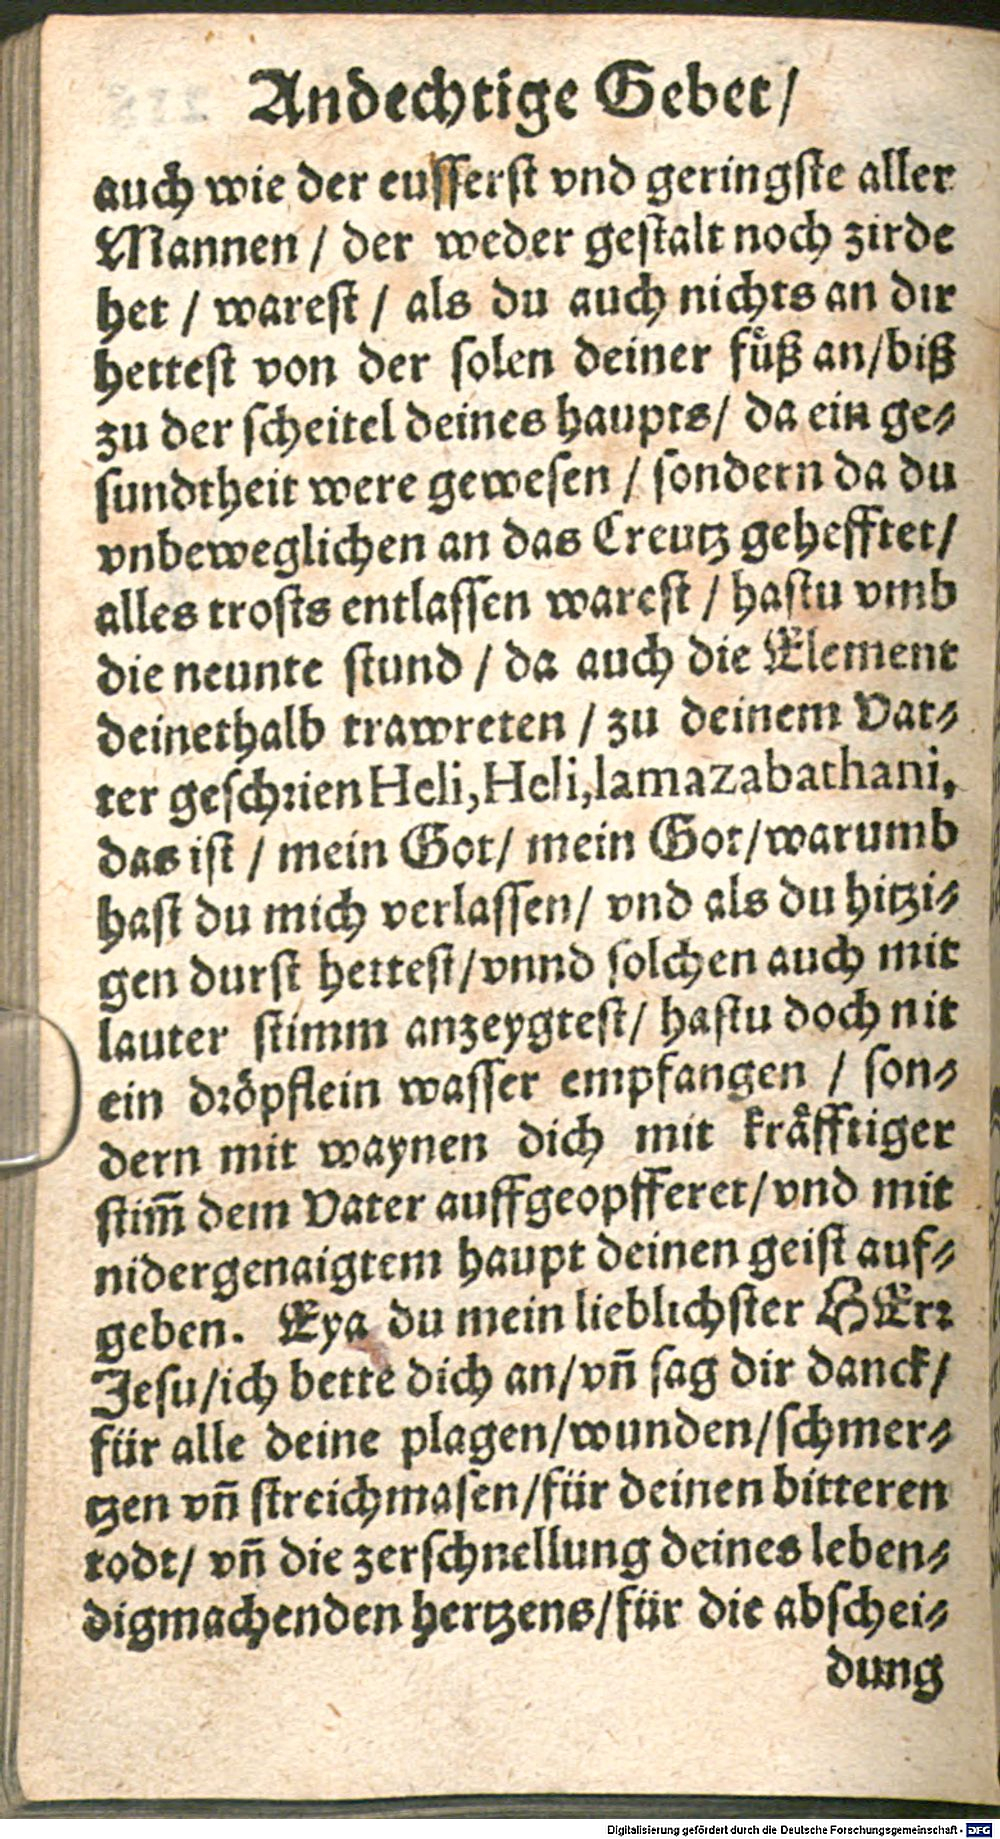 Andechtige Gebet/
auch wie der eusserst vnd geringste aller
Mannen / der weder gestalt noch zirde
het / warest / als du auch nichts an dir
hettest von der solen deiner fuͤß an/biß
zu der scheitel deines haupts/ da ein ge-
sundtheit were gewesen / sondern da du
vnbeweglichen an das Creutz gehefftet/
alles trosts entlassen warest / hastu vmb
die neunte stund / da auch die Element
deinethalb trawreten / zu deinem Vat-
ter geschrien Heli, Heli, lamazabathani,
das ist / mein Got/ mein Got/warumb
hast du mich verlassen/ vnd als du hitzi-
gen durst hettest/vnnd solchen auch mit
lauter stimm anzeygtest/ hastu doch nit
ein dröpflein wasser empfangen / son-
dern mit waynen dich mit kraͤfftiger
stim̃ dem Vater auffgeopfferet/vnd mit
nidergenaigtem haupt deinen geist auf-
geben. Eya du mein lieblichster HErr
Jesu/ich bette dich an/vñ sag dir danck/
für alle deine plagen/wunden/schmer-
tzen vñ streichmasen/für deinen bitteren
todt/ vñ die zerschnellung deines leben-
digmachenden hertzens/für die abschei-
dung
Digitalisierung gefördert durch die Deutsche Forschungsgemeinschaft - DFG